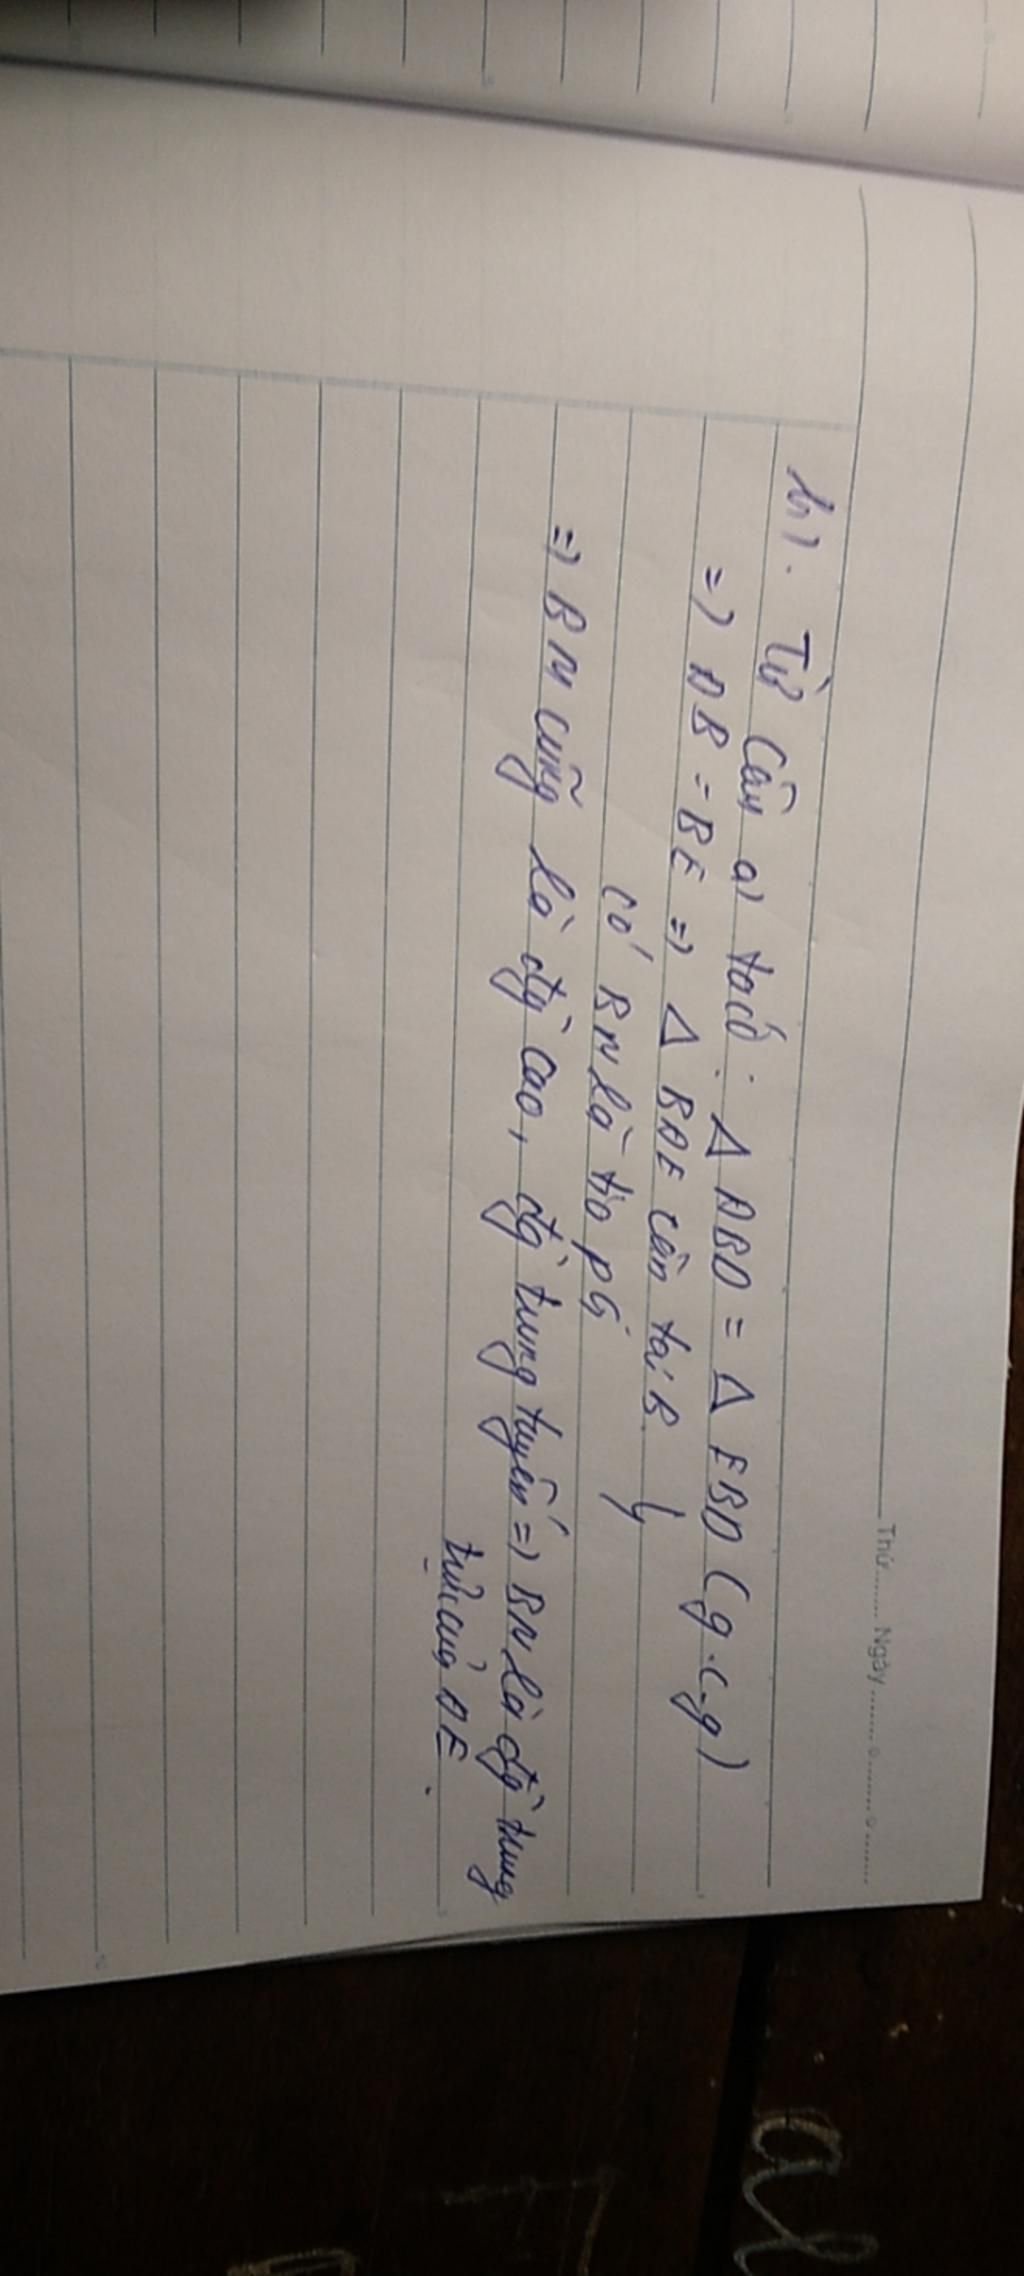 Thứ........ Ngày........
b). Từ câu a) ta có: Δ ABD = Δ EBD (g.c.g)
=) AB = BE =) Δ BAE cân tại B
có BN là tia pG
=) BN cũng là đg cao, đg trung tuyến =) BN là đg trung
trực của AE.